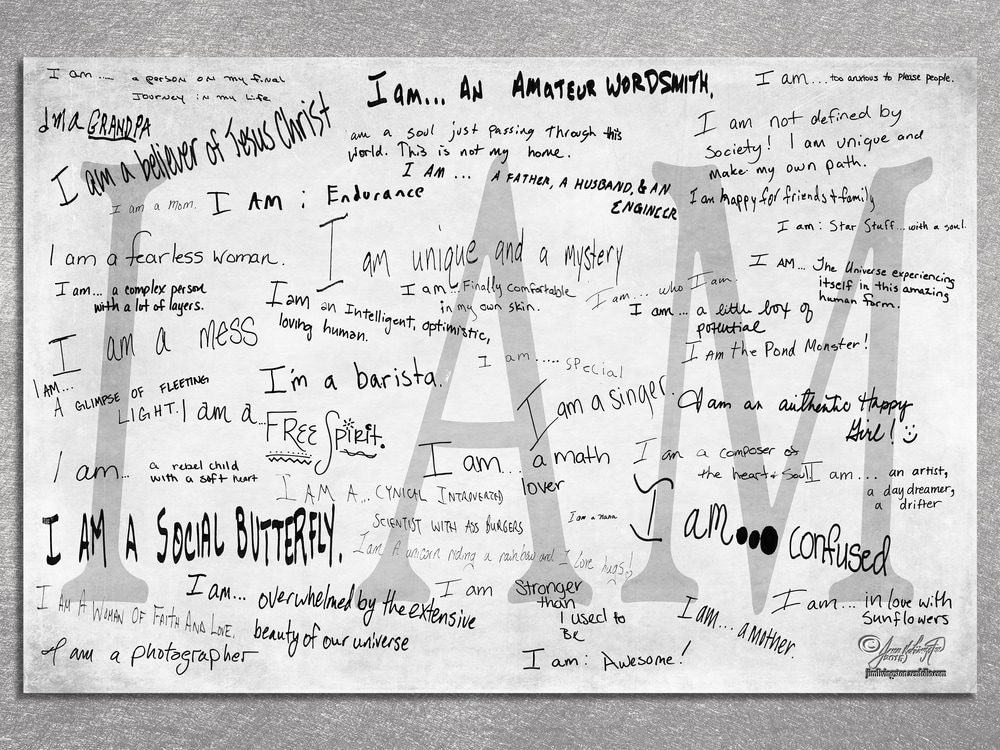 I am.... a person on my final
Journey in my Life
I am... AN AMATEUR WORDSMITH.
I am... too anxious to please people.
I'm a GRANDPA
I am a believer of Jesus Christ
am a soul just passing through this
world. This is not my home.
I am not defined by
society! I am unique and
make my own path.
I AM... A FATHER, A HUSBAND, & AN
ENGINEER
I am a mom.
I AM : Endurance
I am happy for friends + family
I am: Star Stuff... with a soul.
I am a fearless woman.
I am unique and a mystery
I AM... The Universe experiencing
itself in this amazing
human form.
I am... a complex person
with a lot of layers.
I am an Intelligent, optimistic,
loving human.
I am... Finally comfortable
in my own skin.
I am... who I am.
I am... a little box of
potential
I am a mess
I am ..... special
I AM the Pond Monster!
I AM...
A GLIMPSE OF FLEETING
LIGHT.
I'm a barista.
I am a...
FREE Spirit.
I am a singer.
I am an authentic Happy
Girl!
I am... a rebel child
with a soft heart
I am... a math
lover
I am a composer of
the heart + Soul
I am... an artist,
a day dreamer,
a drifter
I AM A... CYNICAL INTROVERTED
SCIENTIST WITH ASS BURGERS
I am a nana
I AM A SOCIAL BUTTERFLY.
I am A unicorn riding a rainbow and I love hugs!
I am... confused
I AM A WOMAN OF FAITH AND LOVE.
I am... overwhelmed by the extensive
beauty of our universe
I am Stronger
than
I used to
Be
I am... a mother.
I am... in love with
Sunflowers
I am a photographer
I am: Awesome!
I AM
©
jimlivingston.weebly.com